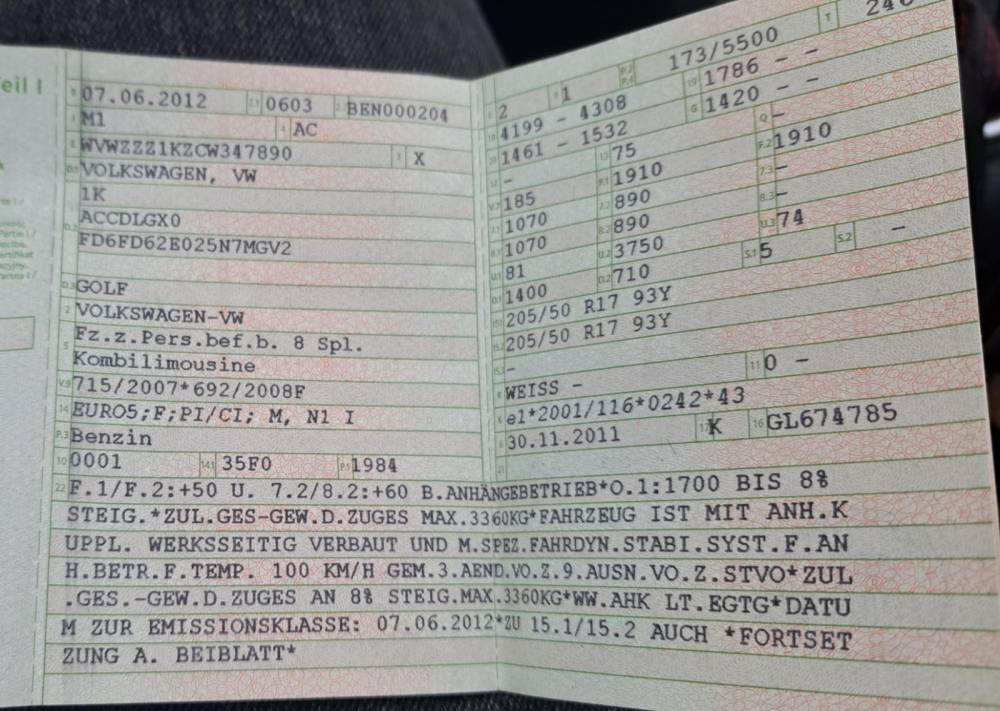 eil I
B 07.06.2012 2.1 0603 2.2 BEN000204
J M1 4 AC
E WVWZZZ1KZCW347890 3 X
D.1 VOLKSWAGEN, VW
1K
D.2 ACCDLGX0
FD6FD62E025N7MGV2
D.3 GOLF
2 VOLKSWAGEN-VW
5 Fz.z.Pers.bef.b. 8 Spl.
Kombilimousine
V.9 715/2007*692/2008F
14 EURO5;F;PI/CI; M, N1 I
P.3 Benzin
10 0001 14.1 35F0 P.1 1984
L 2 9 1 P.2 P.4 173/5500 T
18 4199 - 4308 19 1786 - -
20 1461 - 1532 G 1420 - -
12 - 13 75 Q -
V.7 185 F.1 1910 F.2 1910
7.1 1070 7.2 890 7.3 -
8.1 1070 8.2 890 8.3 -
U.1 81 U.2 3750 U.3 74
O.1 1400 O.2 710 S.1 5 S.2 -
15.1 205/50 R17 93Y
15.2 205/50 R17 93Y
15.3 -
R WEISS - 11 0 -
K e1*2001/116*0242*43
6 30.11.2011 17 K 16 GL674785
21
22 F.1/F.2:+50 U. 7.2/8.2:+60 B.ANHÄNGEBETRIEB*O.1:1700 BIS 8%
STEIG.*ZUL.GES-GEW.D.ZUGES MAX.3360KG*FAHRZEUG IST MIT ANH.K
UPPL. WERKSSEITIG VERBAUT UND M.SPEZ.FAHRDYN.STABI.SYST.F.AN
H.BETR.F.TEMP. 100 KM/H GEM.3.AEND.VO.Z.9.AUSN.VO.Z.STVO*ZUL
.GES.-GEW.D.ZUGES AN 8% STEIG.MAX.3360KG*WW.AHK LT.EGTG*DATU
M ZUR EMISSIONSKLASSE: 07.06.2012*ZU 15.1/15.2 AUCH *FORTSET
ZUNG A. BEIBLATT*